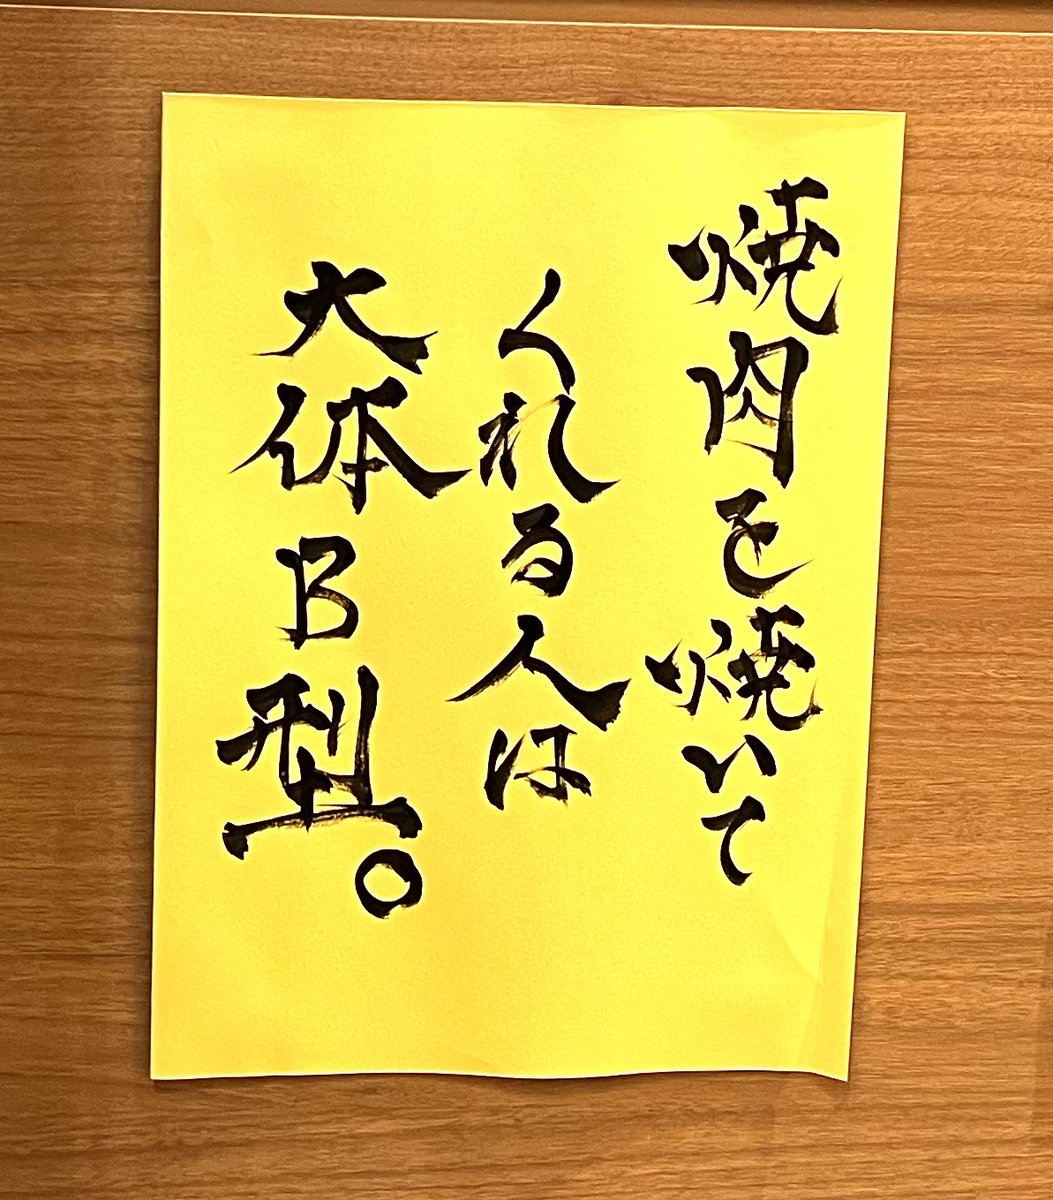 焼肉を焼いて
くれる人は
大体B型。